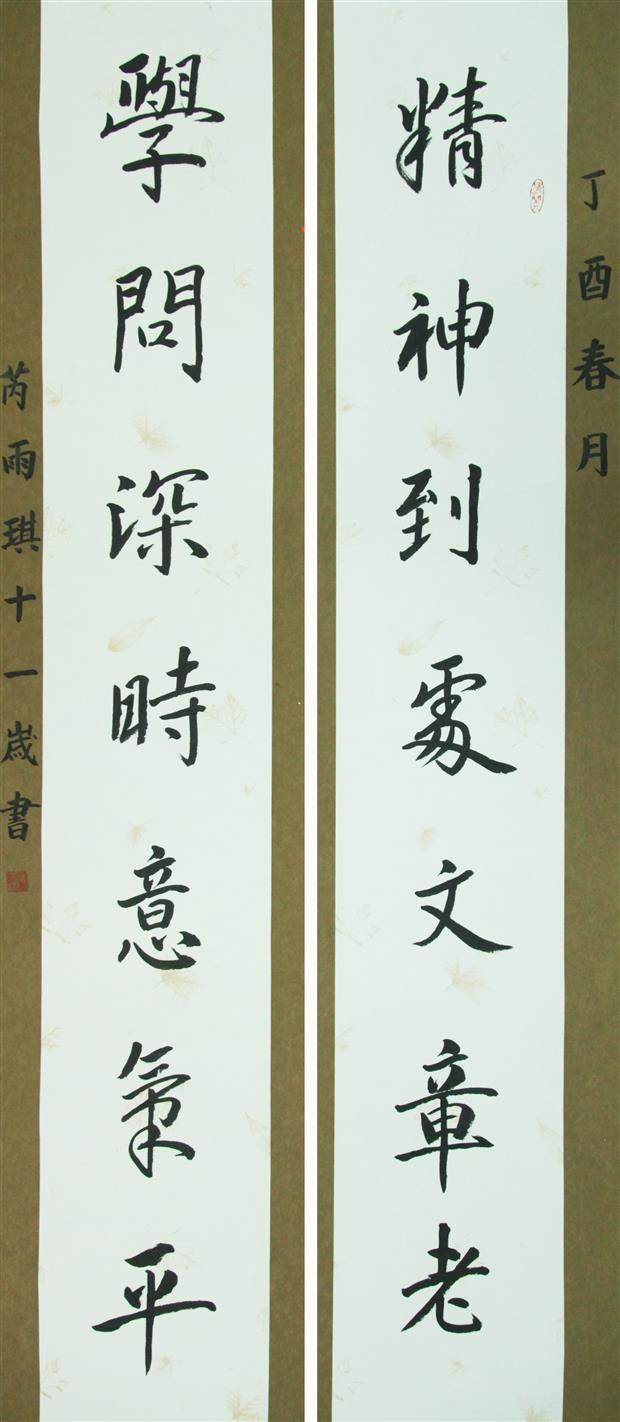 丁酉春月
精神到處文章老
學問深時意氣平
芮雨琪十一歲書